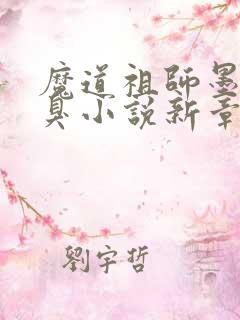 魔道祖師墨
臭小說新章
劉宇哲